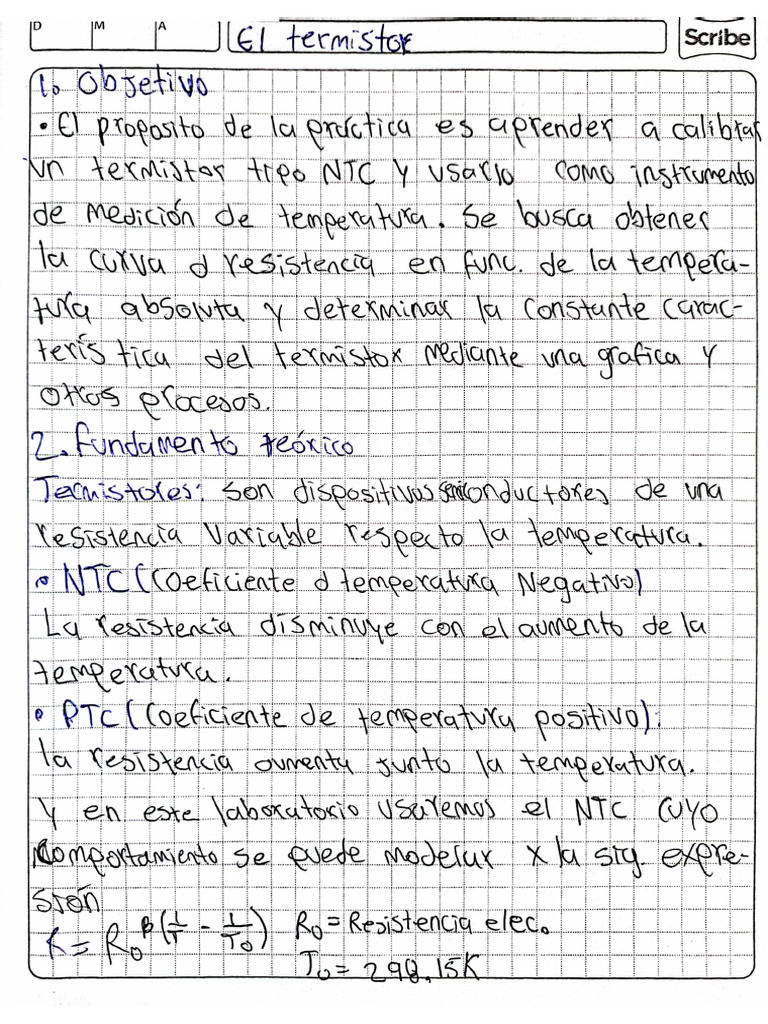 D M A El termistor Scribe
1. Objetivo
• El proposito de la práctica es aprender a calibrar
un termistor tipo NTC y usarlo como instrumento
de medición de temperatura. Se busca obtener
la curva d resistencia en func. de la tempera-
tura absoluta y determinar la constante carac-
terística del termistor mediante una grafica y
otros procesos.
2. fundamento teórico
Termistores: son dispositivos semiconductores de una
resistencia variable respecto la temperatura.
• NTC (Coeficiente d temperatura Negativo)
La resistencia disminuye con el aumento de la
temperatura.
• PTC (Coeficiente de temperatura positivo):
la resistencia aumenta junto la temperatura.
Y en este laboratorio usaremos el NTC cuyo
Comportamiento se puede modelar x la sig. expre-
sión
R = R₀ᵝ(1/T - 1/T₀) R₀ = Resistencia elec.
T₀ = 298,15K